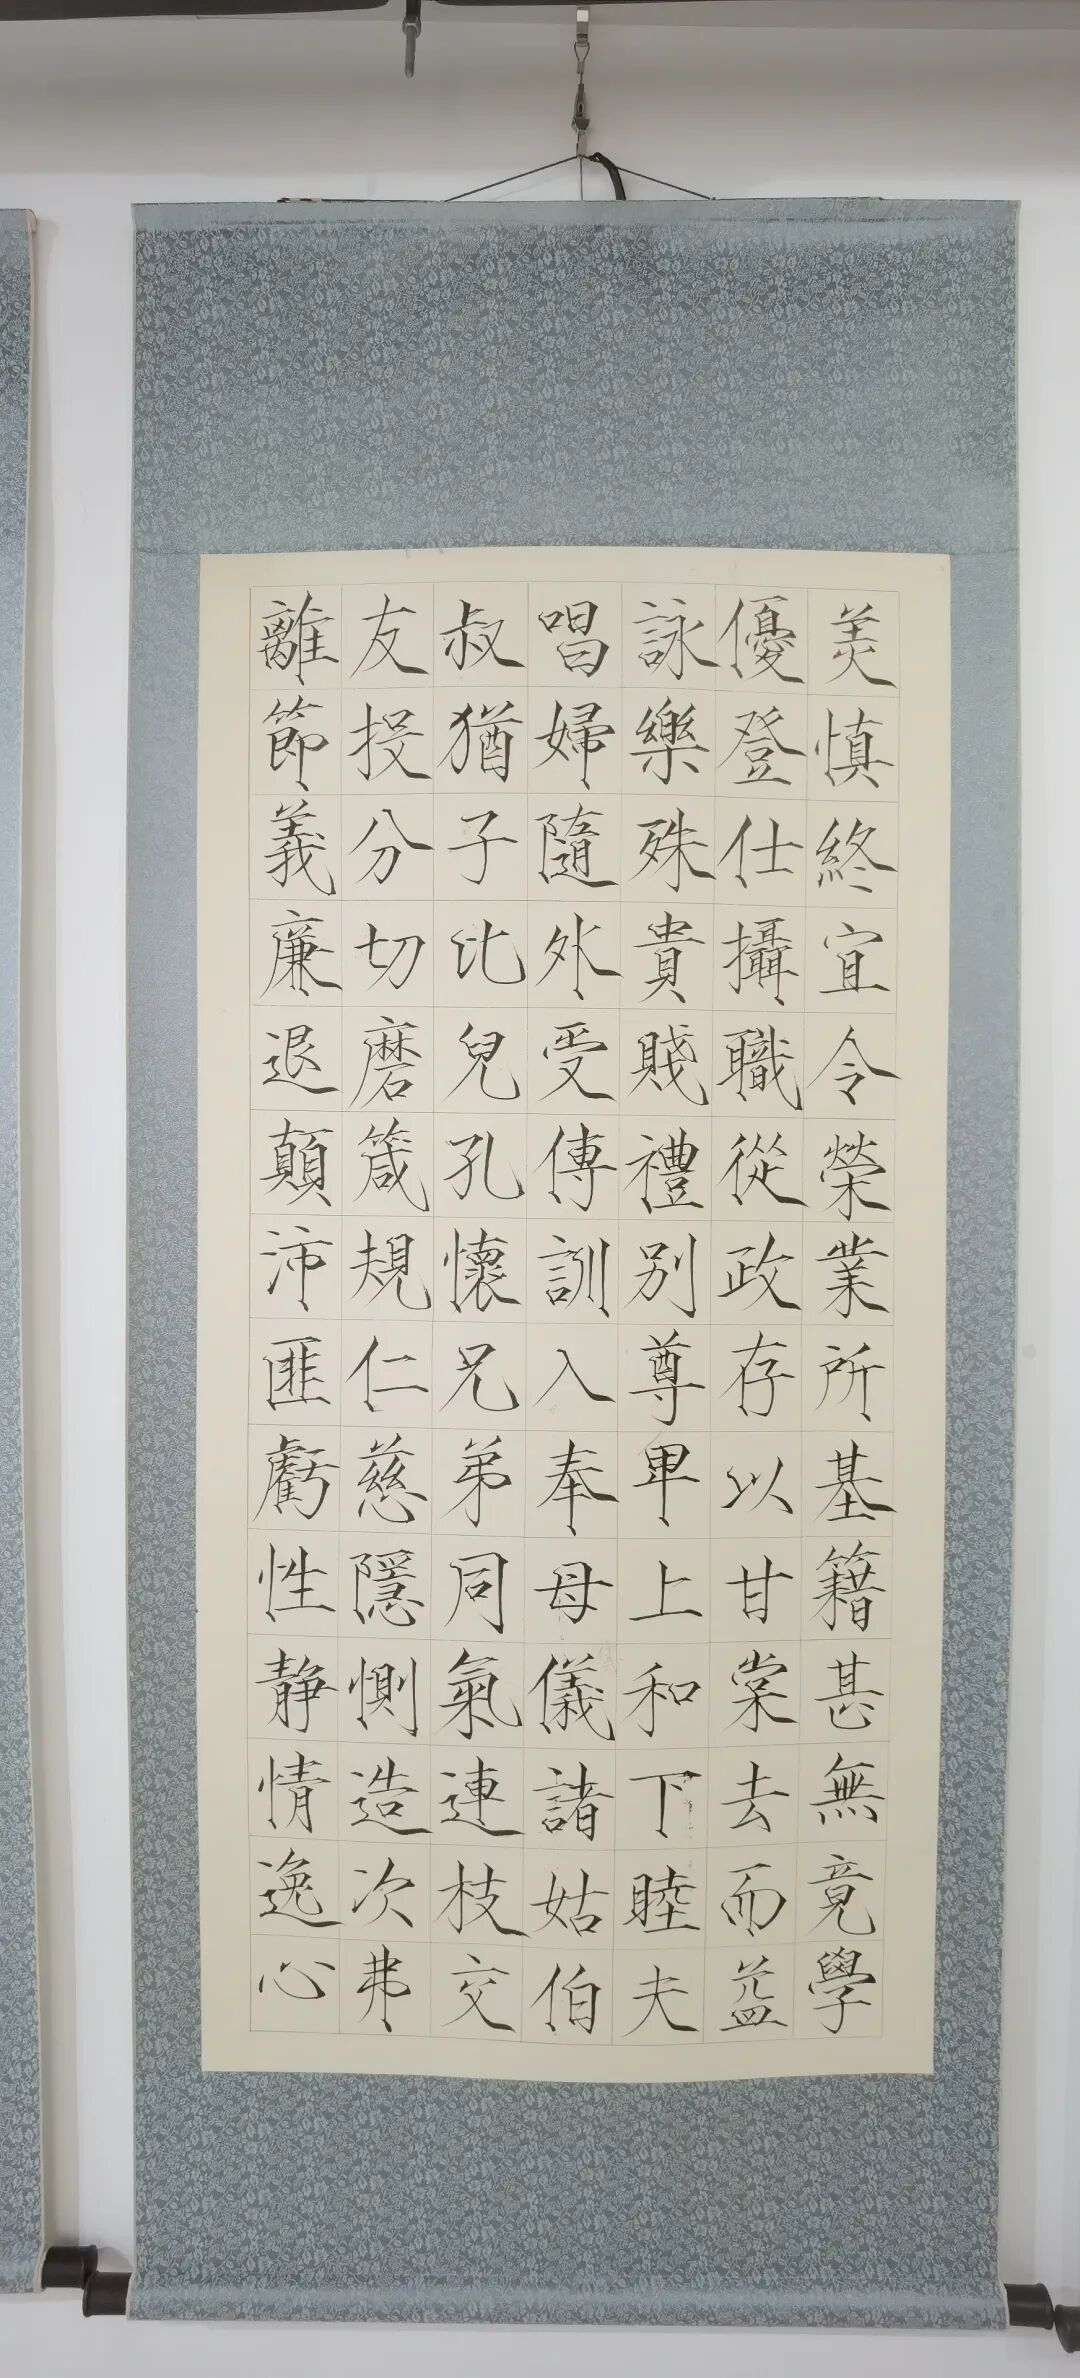 美慎終宜令榮業所基籍甚無竟學
優登仕攝職從政存以甘棠去而益
詠樂殊貴賤禮別尊卑上和下睦夫
唱婦隨外受傅訓入奉母儀諸姑伯
叔猶子比兒孔懷兄弟同氣連枝交
友投分切磨箴規仁慈隱惻造次弗
離節義廉退顛沛匪虧性靜情逸心